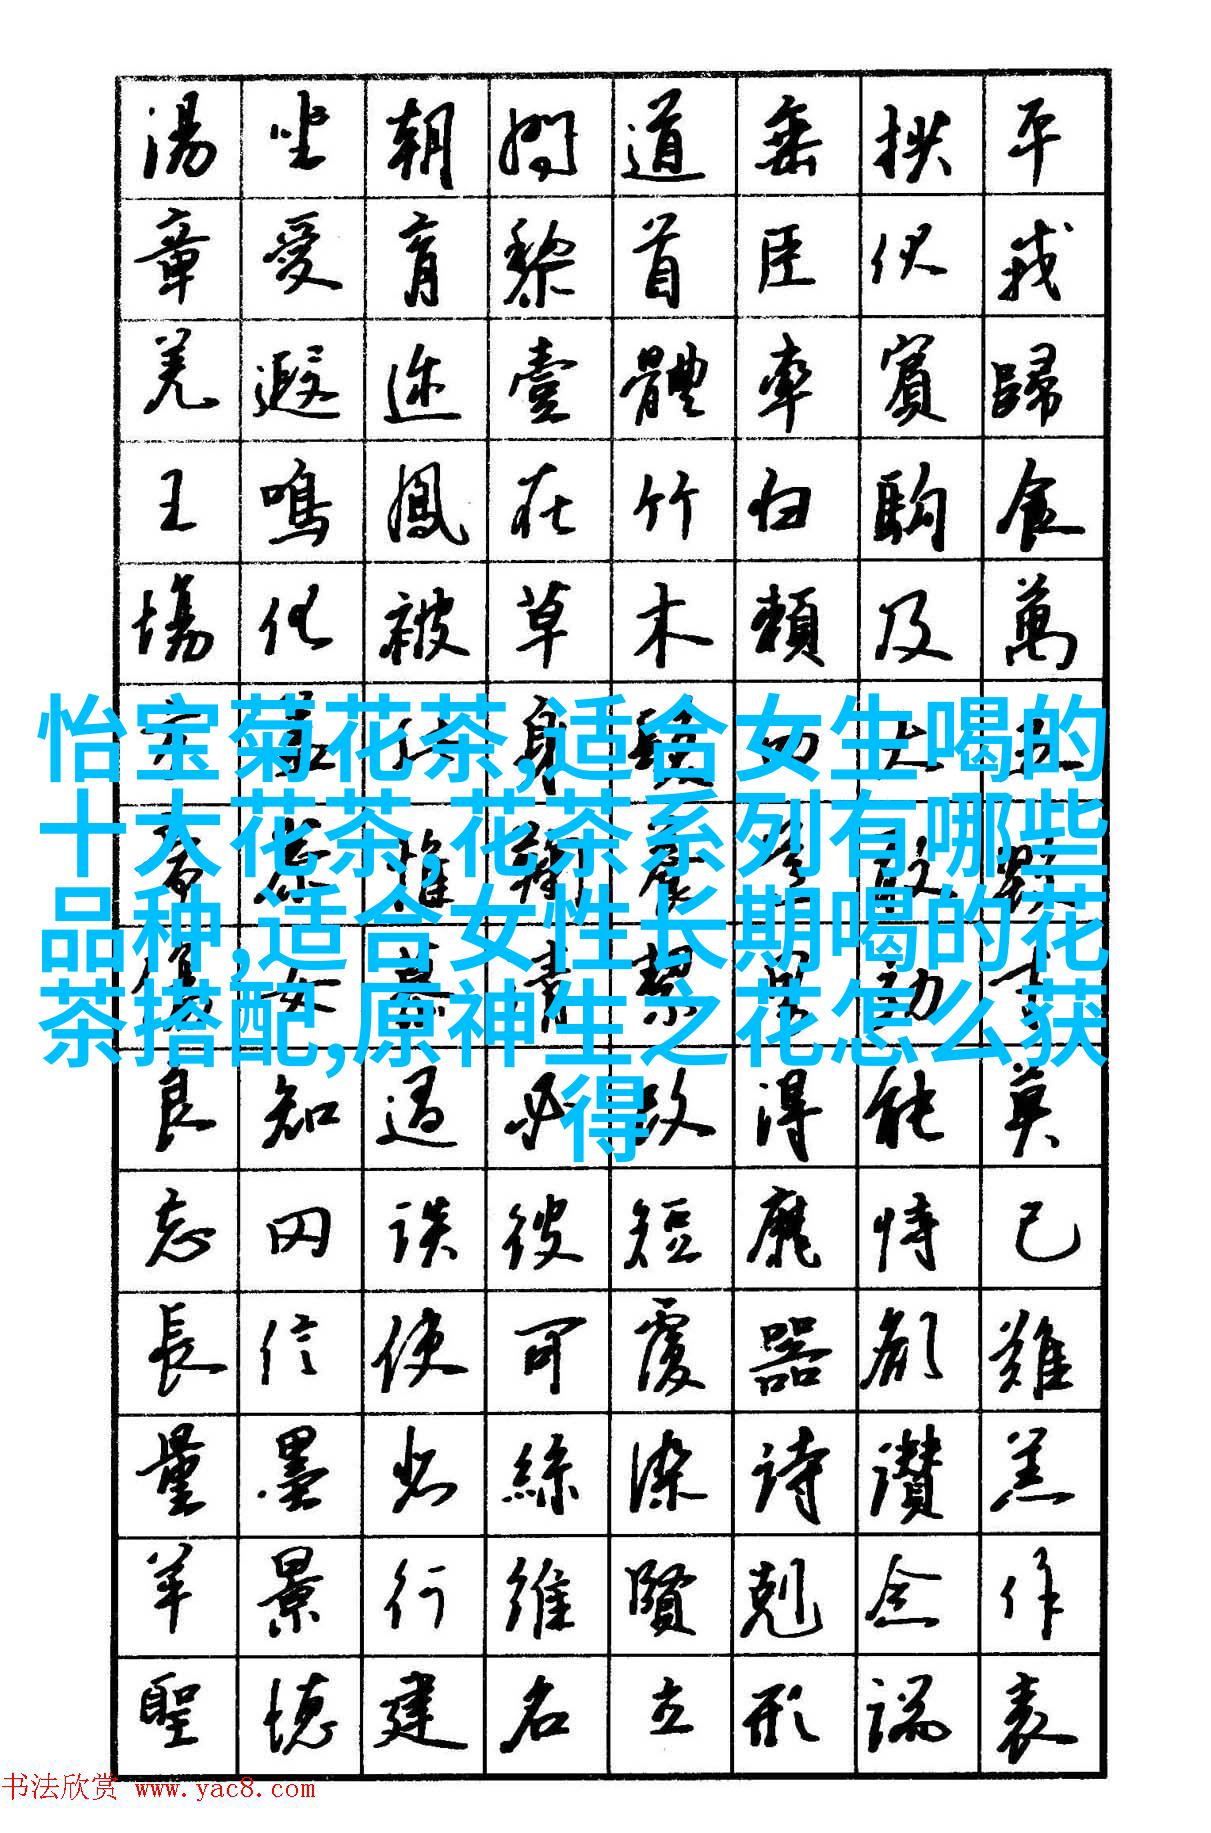 湯坐朝問道垂拱平
章愛育黎首臣伏戎
羌遐迩壹體率賓歸
王鳴鳳在竹白駒食
場化被草木賴及萬
怡宝菊花茶,适合女生喝的
十大花茶,花茶系列有哪些
品种,适合女性长期喝的花
茶搭配,原神生之花怎么获
得
良知過必改得能莫
忘罔談彼短靡恃己
長信使可覆器欲難
量墨悲絲染詩讃羔
羊景行維賢剋念作
聖德建名立形端表
书法欣赏 www.yac8.com